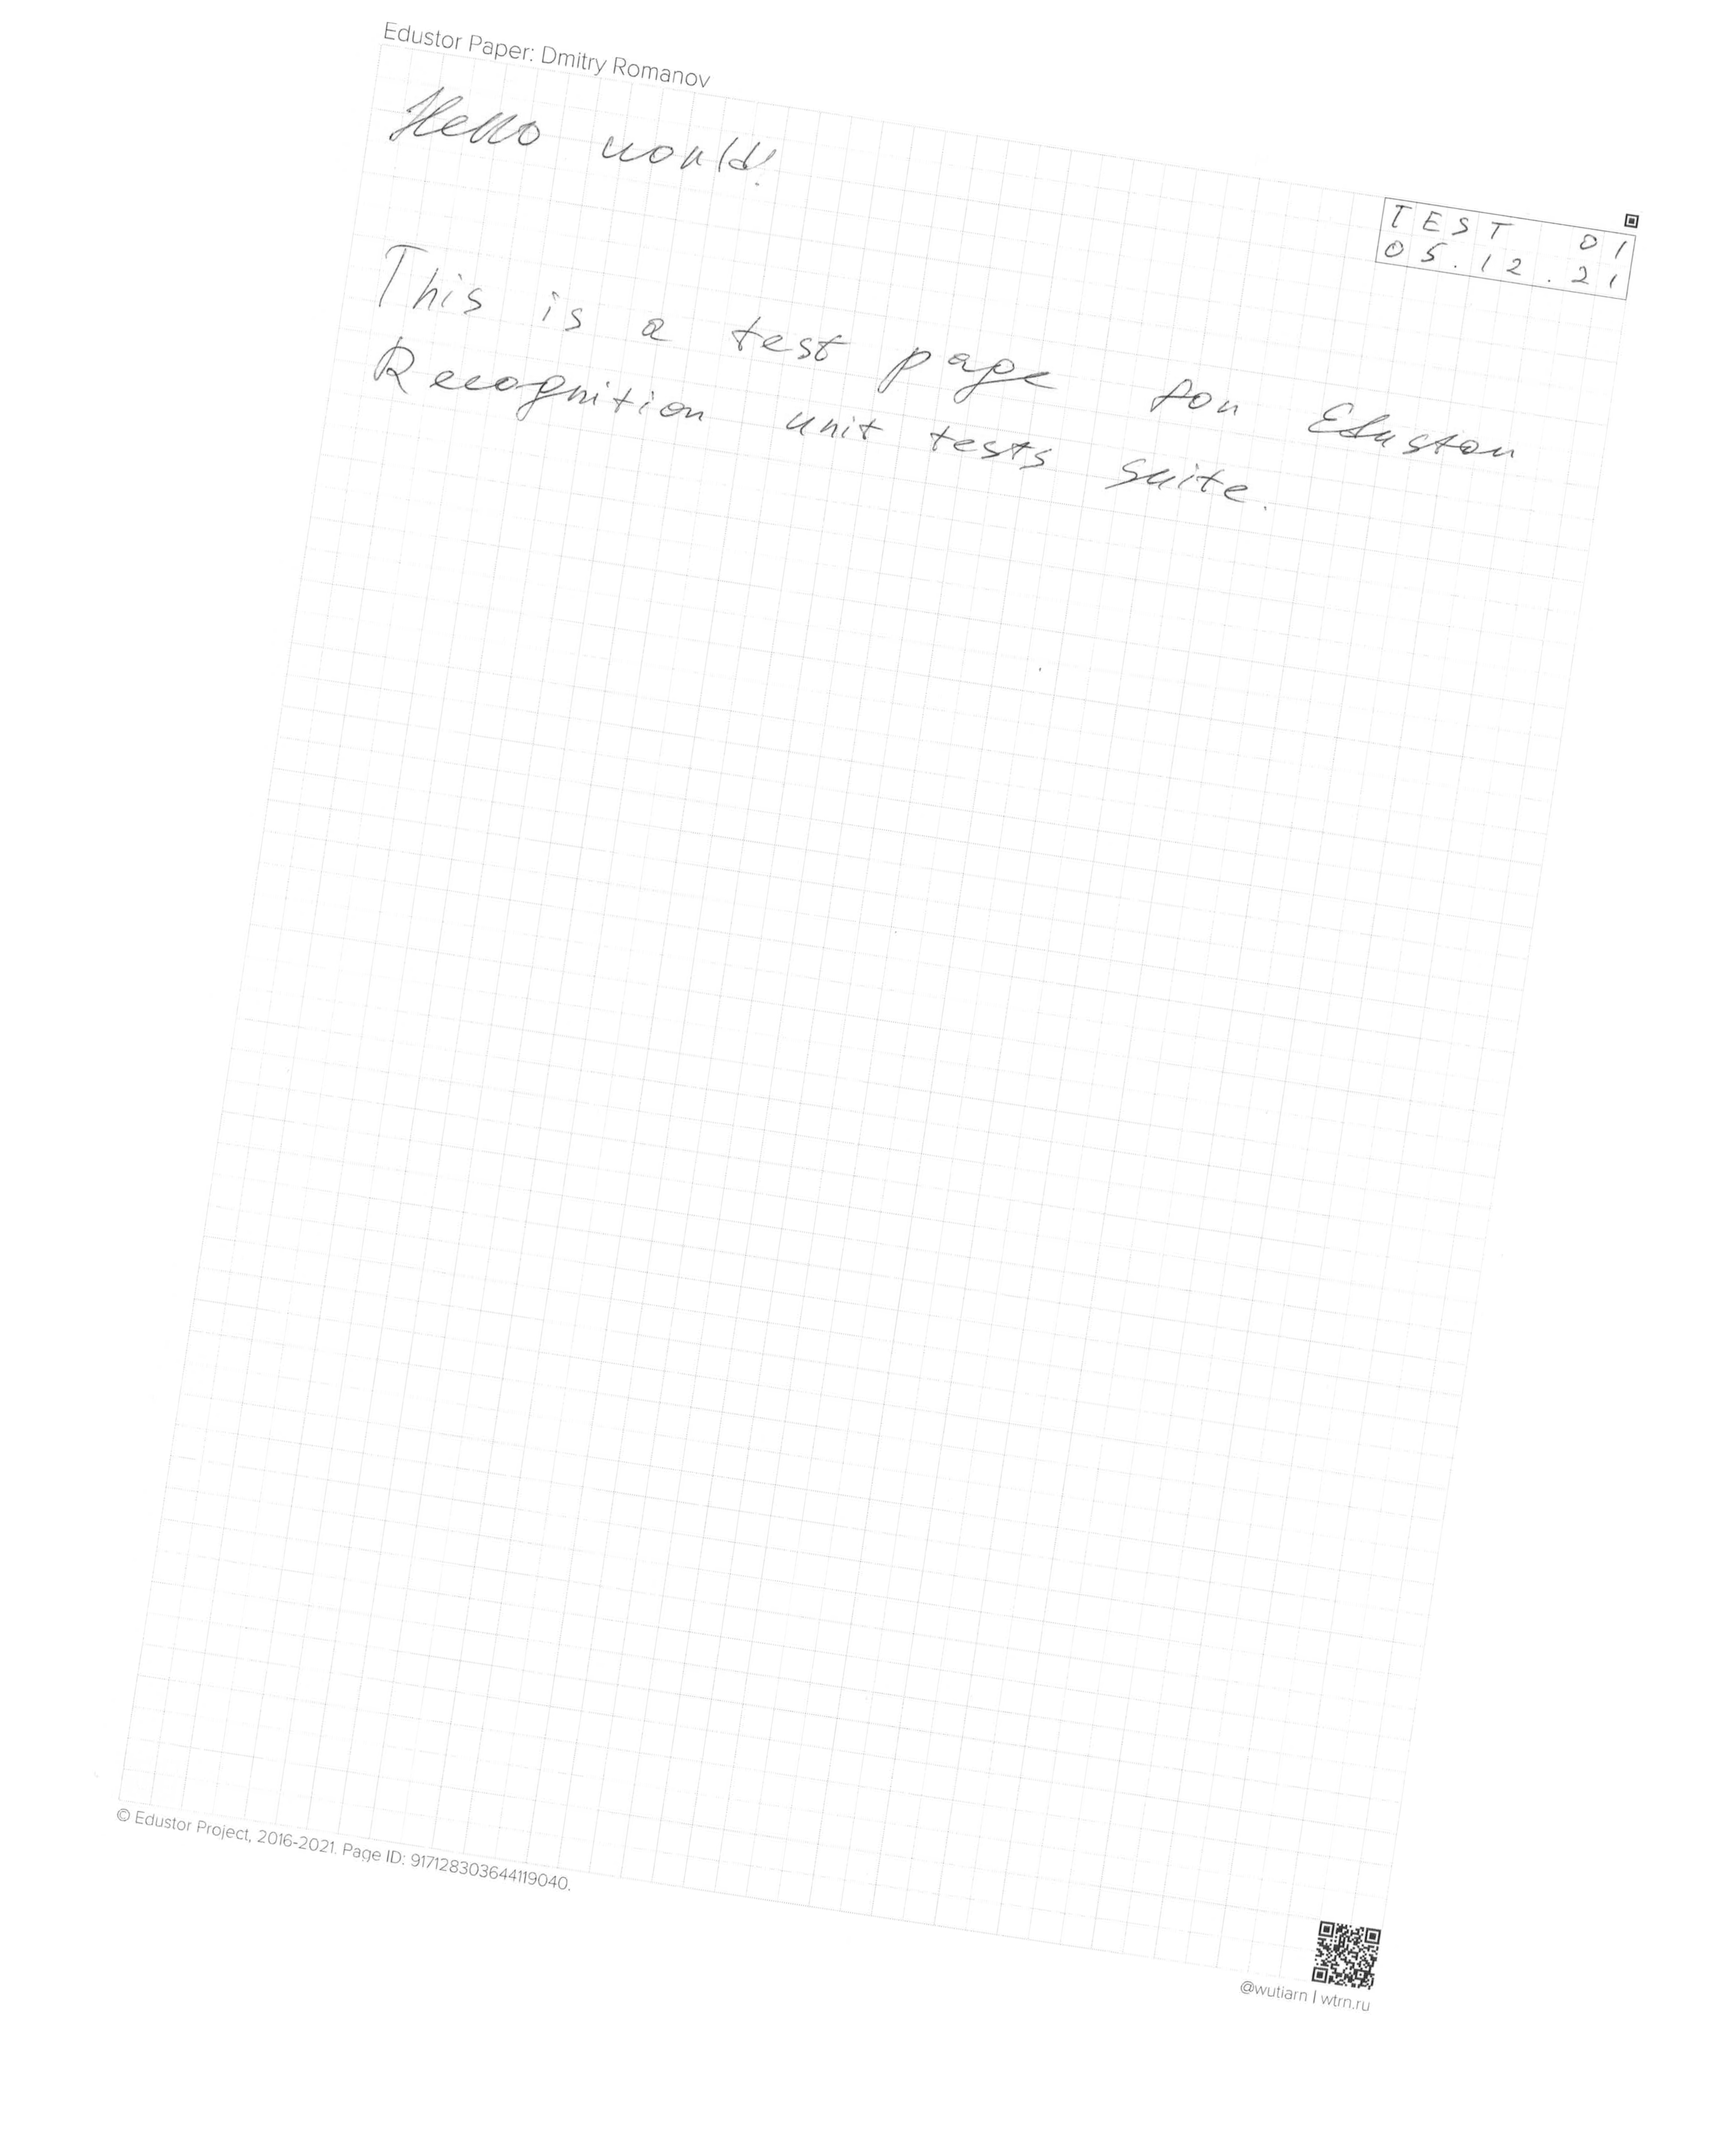 Edustor Paper: Dmitry Romanov
Hello world!
TEST 01
05.12.21
This is a test page for Edustor
Recognition unit tests suite.
© Edustor Project, 2016-2021. Page ID: 917128303644119040.
@wutiarn | wtrn.ru